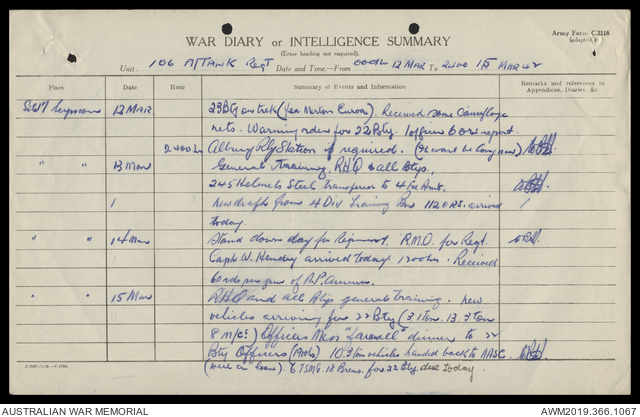 Army Form C.2118
(adapted)
WAR DIARY or INTELLIGENCE SUMMARY
(Erase heading not required).
Unit 106 A/TANK Regt Date and Time—From 0001h 12 MAR To 2400 15 MAR 42
Place Date Hour Summary of Events and Information Remarks and references to Appendices, Diaries, &c
12 MAR 23 Bty on trek (Near Morton). Received some Camouflage
nets. Warning order for 22 Bty. 1 officer 60 ORs report
2400h Albury Rly Station if required.
" " 13 Mar General Training. RHQ & all Btys.
245 Helmets Steel transferred to 4 Fd Amb.
New drafts from 4 Div Training 112 ORS. arrived
today.
" " 14 Mar Stand down day for Regiment. R.M.O. for Regt.
Capt W. Hendry arrived today 1200hrs. Received
60 rds per gun of A.P. Ammn.
" " 15 Mar RHQ and all Btys general training. New
vehicles arriving for 22 Bty (3 1 Ton. 13. 3 Ton
8 M/Cs) Officers Mess "farewell" dinner to 22
Bty Officers (1900hrs) 10. 3 ton vehicles handed back to AASC.
(were on loan). 6 TSMG. 18 Brens. for 22 Bty due today.
AUSTRALIAN WAR MEMORIAL
AWM2019.366.1067